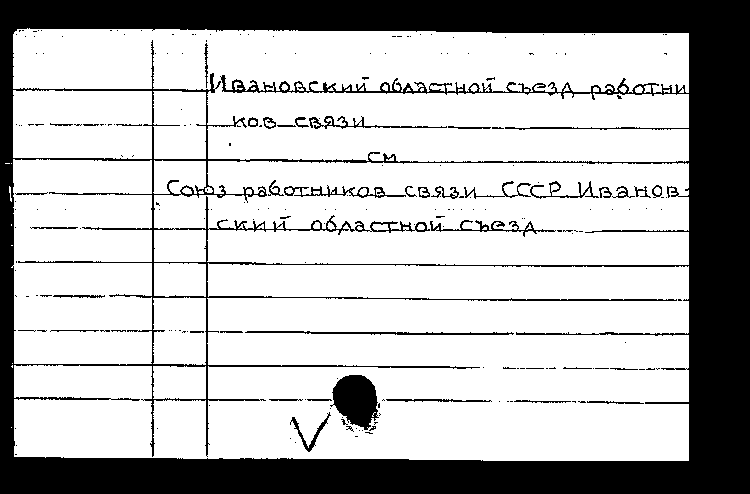 Ивановский областной съезд работни
ков связи
см
Союз работников связи СССР Иванов-
ский областной съезд